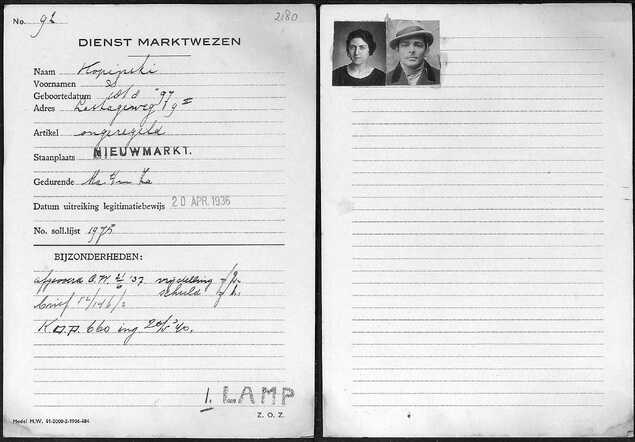 No. 92 2180
DIENST MARKTWEZEN
Naam Kopinski
Voornamen
Geboortedatum '97
Adres Lastageweg 19 II
Artikel ongeregeld
Staanplaats NIEUWMARKT.
Gedurende Ma t/m Za
Datum uitreiking legitimatiebewijs 20 APR. 1936
No. soll.lijst 1975
BIJZONDERHEDEN:
afgevoerd '37
schuld
brief
ing '40.
1. LAMP
Z. O. Z.
Model M.W. 61-2000-2-1936-484